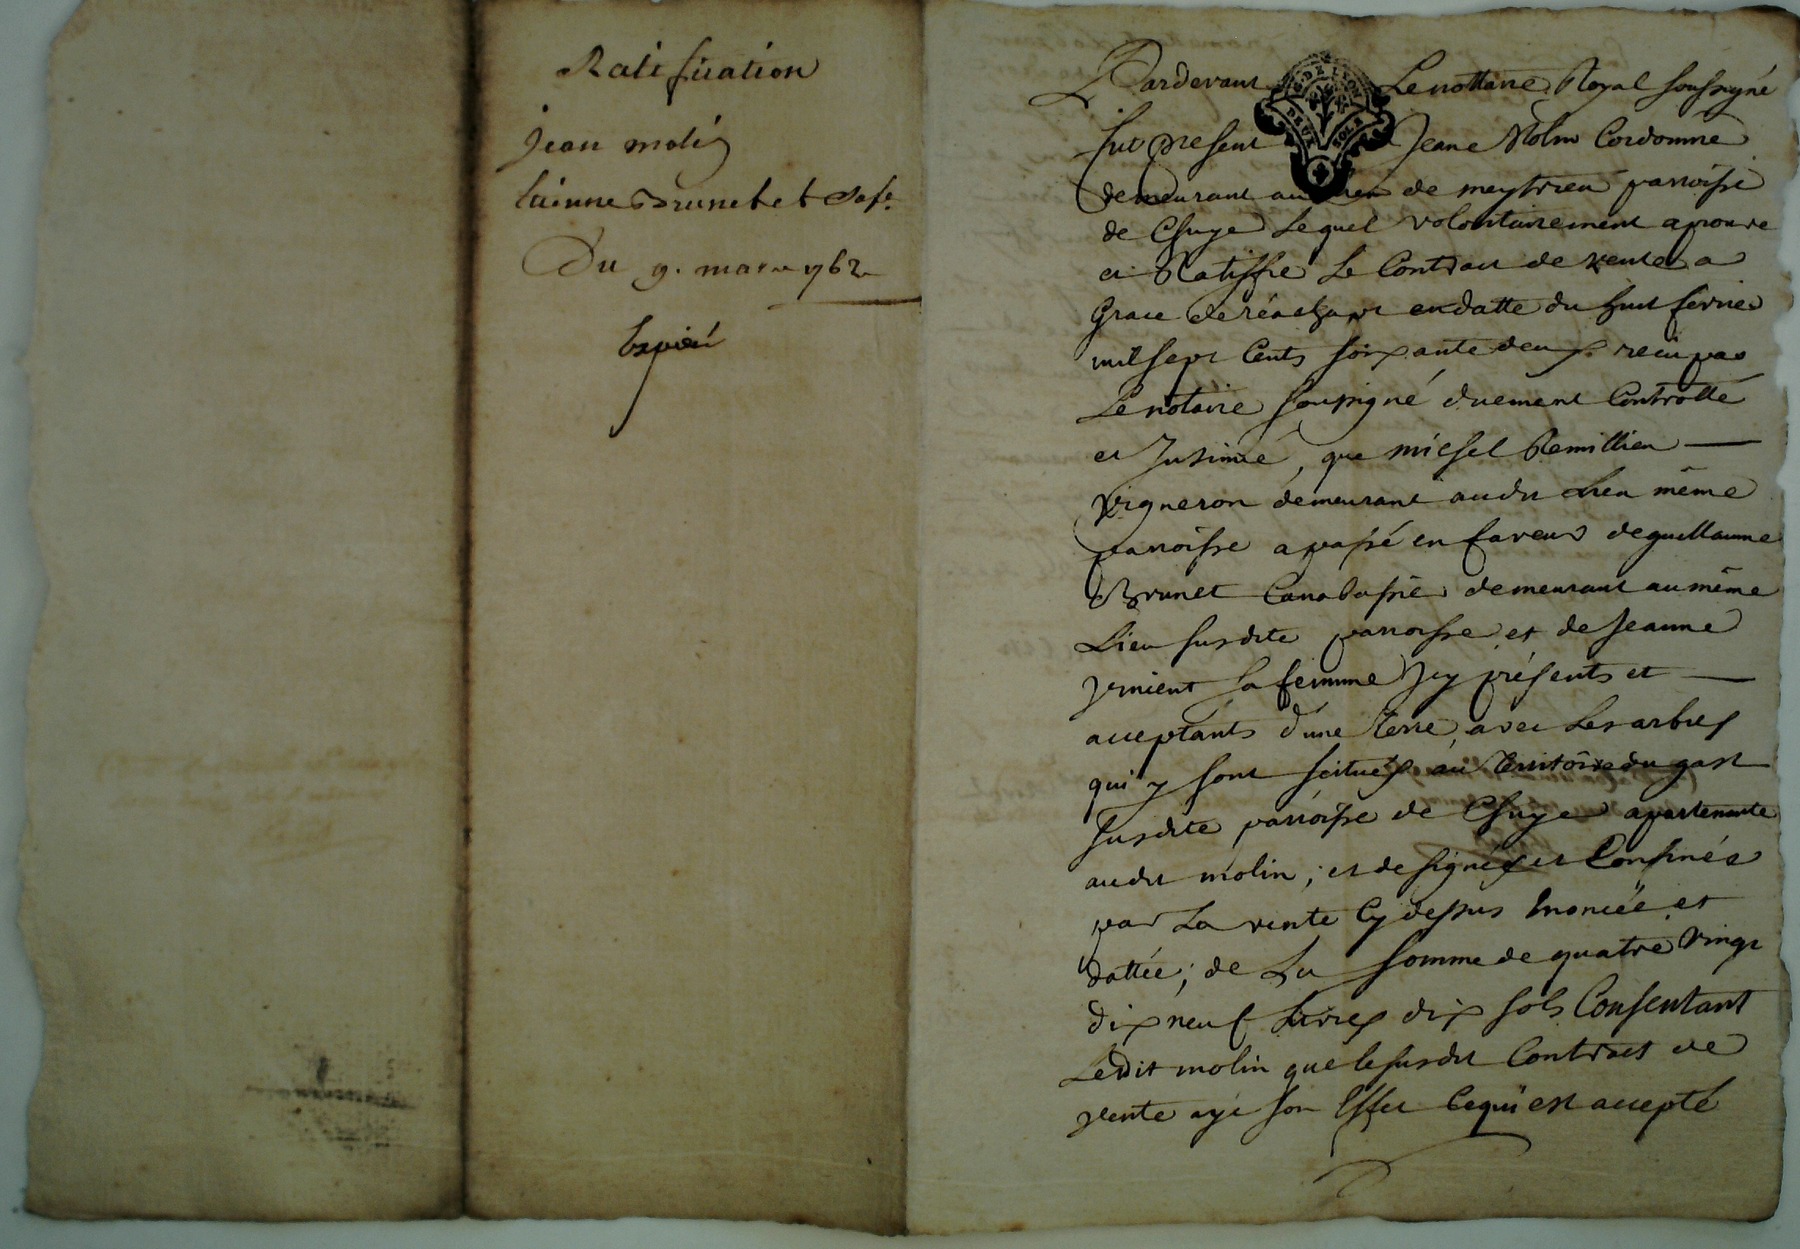 Ratification
jean molin
Brunet et Sa fe.
Du 9. mars 1762
Expédié
G. DE LYON
DEUX SOLS
Pardevant Le nottaire Royal soussigné
fut present Jean Molin Cordonnié
demeurant au lieu de meyTrieu parroisse
de Chuye Lequel volontairement aprouve
et Ratiffie Le Contract de vente a
Grace de réachapt en datte du huit fevrier
mil sept Cents soixante deux receu par
Le notaire soussigné duement Controllé
et Insinué, que michel Remillieu
vigneron demeurant audit Lieu même
parroisse a passé en faveur de guillaume
Brunet Canabassié demeurant au même
Lieu susdite parroisse et de Jeanne
sa femme Icy présents et
acceptants d'une terre avec Les arbres
qui y sont scitués au Territoire du gast
susdite parroisse de Chuye apartenante
audit molin; et designés et Confinés
par La vente Cy dessus Enoncée et
dattée; de La somme de quatre vingt
dix neuf Livres dix sols Consentant
Ledit molin que le susdit Contract de
vente aye son Effet Ce qui est accepté